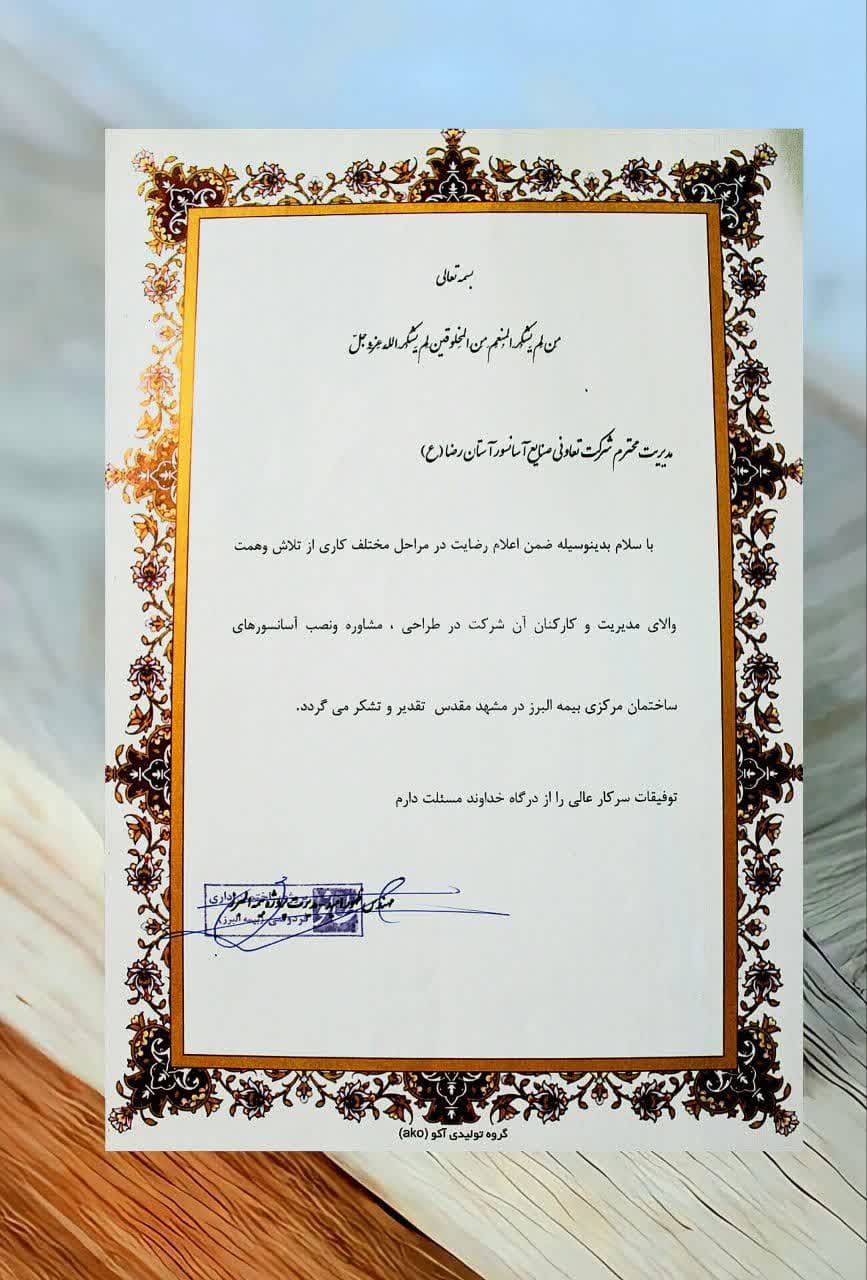 بسمه تعالی
من لم یشکر المنعم من المخلوقین لم یشکر الله عزوجل
مدیریت محترم شرکت تعاونی صنایع آسانسور آستان رضا (ع)
با سلام بدینوسیله ضمن اعلام رضایت در مراحل مختلف کاری از تلاش وهمت
والای مدیریت و کارکنان آن شرکت در طراحی ، مشاوره ونصب آسانسورهای
ساختمان مرکزی بیمه البرز در مشهد مقدس تقدیر و تشکر می گردد.
توفیقات سرکار عالی را از درگاه خداوند مسئلت دارم
مهندس مدیریت پروژه بیمه البرز
(بیمه البرز)
گروه تولیدی آکو (ako)